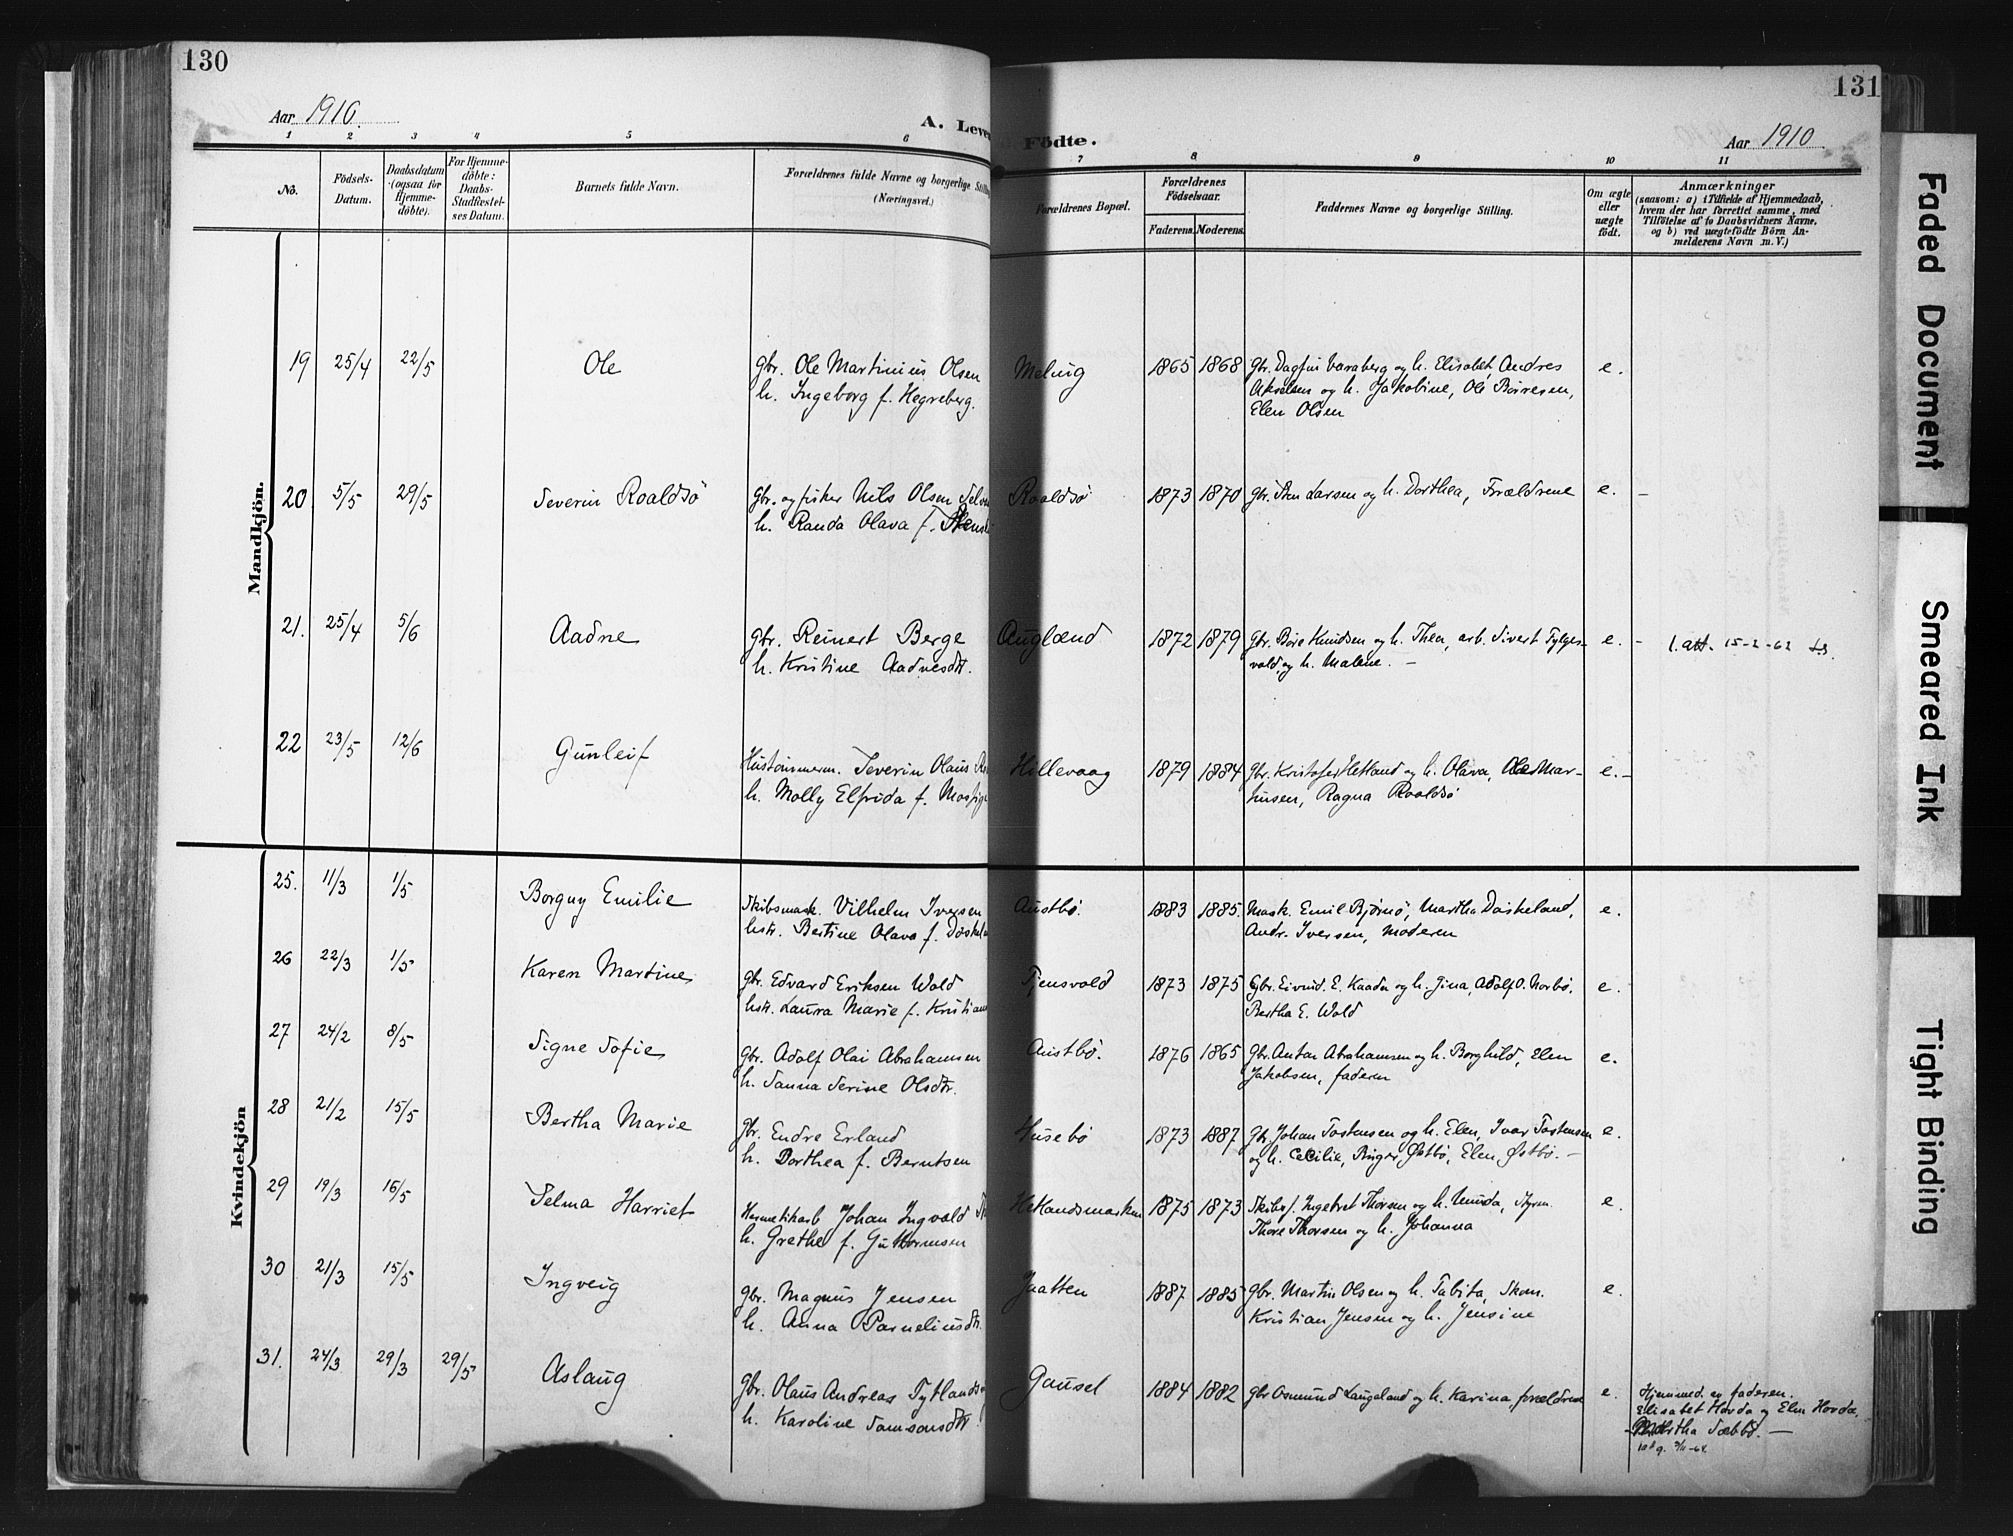 130
131
Aar 1910.
A. Leve
Födte.
Aar 1910
1 2 3 4 5 6
7 8 9 10 11
No.
Födsels-
Datum.
Daabsdatum
(ogsaa for
Hjemme-
döbte).
For Hjemme-
döbte:
Daabs-
Stadfæstel-
ses Datum.
Barnets fulde Navn.
Forældrenes fulde Navne og borgerlige Still
(Næringsvei.)
Forældrenes Bopæl.
Forældrenes
Födselsaar.
Faderens.
Moderens.
Faddernes Navne og borgerlige Stilling.
Om ægte
eller
uægte
födt.
Anmærkninger
(saasom: a) i Tilfælde af Hjemmedaab,
hvem der har forrettet samme, med
Tilföielse af to Daabsvidners Navne,
og b) ved uægtefödte Börn An-
melderens Navn m. V.)
Mandkjön.
19 25/4 22/5 Ole
Gbr. Ole Martinius Olsen
h. Ingeborg f. Hegreberg.
Meling 1865 1868
Gbr. Dagfin Varaberg og h. Elisabet, Andres
Akselsen og h. Jakobine, Ole Børresen,
Elen Olsen
e.
20 5/5 29/5 Severin Roaldsö
Gbr. og fisker Nils Olsen
h. Randa Olava f.
Roaldsö 1873 1870
Gbr. Sten Larsen og h. Dorthea, Forældrene
e. –
21. 25/4 5/6 Aadne
Gbr. Reinert Berge
h. Kristine Aadnesdtr.
Auglænd 1872 1879
Gbr. Børe Knudsen og h. Thea, arb. Sivert Tylges-
vold, og h. Malene. –
e. – 1. att. 15-2-62
22 23/5 12/6 Gunleif
Hustömmerm. Severin Olaus
h. Molly Elfrida f. Mosfig
Hillevaag 1879 1884
Gbr. Kristofer Hetland og h. Olava, Ole Mar-
tinsen, Ragna Roaldsö
e. –
Kvindekjön
25. 11/3 1/5 Borguy Emilie
Skibsmask. Vilhelm Iversen
hstr. Bertine Olava f.
Austbö. 1883 1885.
Mask. Emil Bjørnö, Martha Daskeland,
Andr. Iversen, Moderen
e.
26 22/3 1/5 Karen Martine
Gbr. Edvard Eriksen Wold
hstr. Laura Marie f. Kristian
Tjensvold 1873 1875
Gbr. Eivind. E. Kaada og h. Gina, Adolf O. Norbö,
Bertha E. Wold
e.
27 24/2 8/5 Signe Sofie
Gbr. Adolf Olai Abrahamsen
h. Sanna Serine Olsdtr.
Austbö. 1876 1865
Gbr. Anton Abrahamsen og h. Borghild, Elen
Jakobsen, faderen
e.
28 21/2 15/5 Bertha Marie
Gbr. Endre Erland
h. Dorthea f. Berntsen
Husebö 1873 1887
Gbr. Johan Tostensen og h. Elen, Ivar Tostensen
og h. Cecilie, Ø̈stbö, Elen Østbö. –
e.
29 19/3 16/5 Selma Harriet
Hermetikarb Johan Ingvald
h. Grethe f. Guttormsen
Hetlandsmarken 1875 1873
Skibsf. Ingebret Thorsen og h. Unida, Styrm.
Thore Thorsen og h. Johanna
e.
30 21/3 15/5 Ingveig
Gbr. Magnus Jensen
h. Anna Parneliusdtr.
Jaatten 1887 1885
Gbr. Martin Olsen og h. Tabita, Skom.
Kristian Jensen og h. Jensine
e.
31. 24/3 29/3 29/5 Aslaug
Gbr. Olaus Andreas Tytlands
h. Karoline Samsonsdtr
Gausel 1884 1882
Gbr Osmund Laugeland og h. Karina, forældrene
e.
Hjemmed. av faderen.
Elisabet Hovda og Elen Hovda,
Martha Sæbbö. –
Faded Document
Smeared Ink
Tight Binding